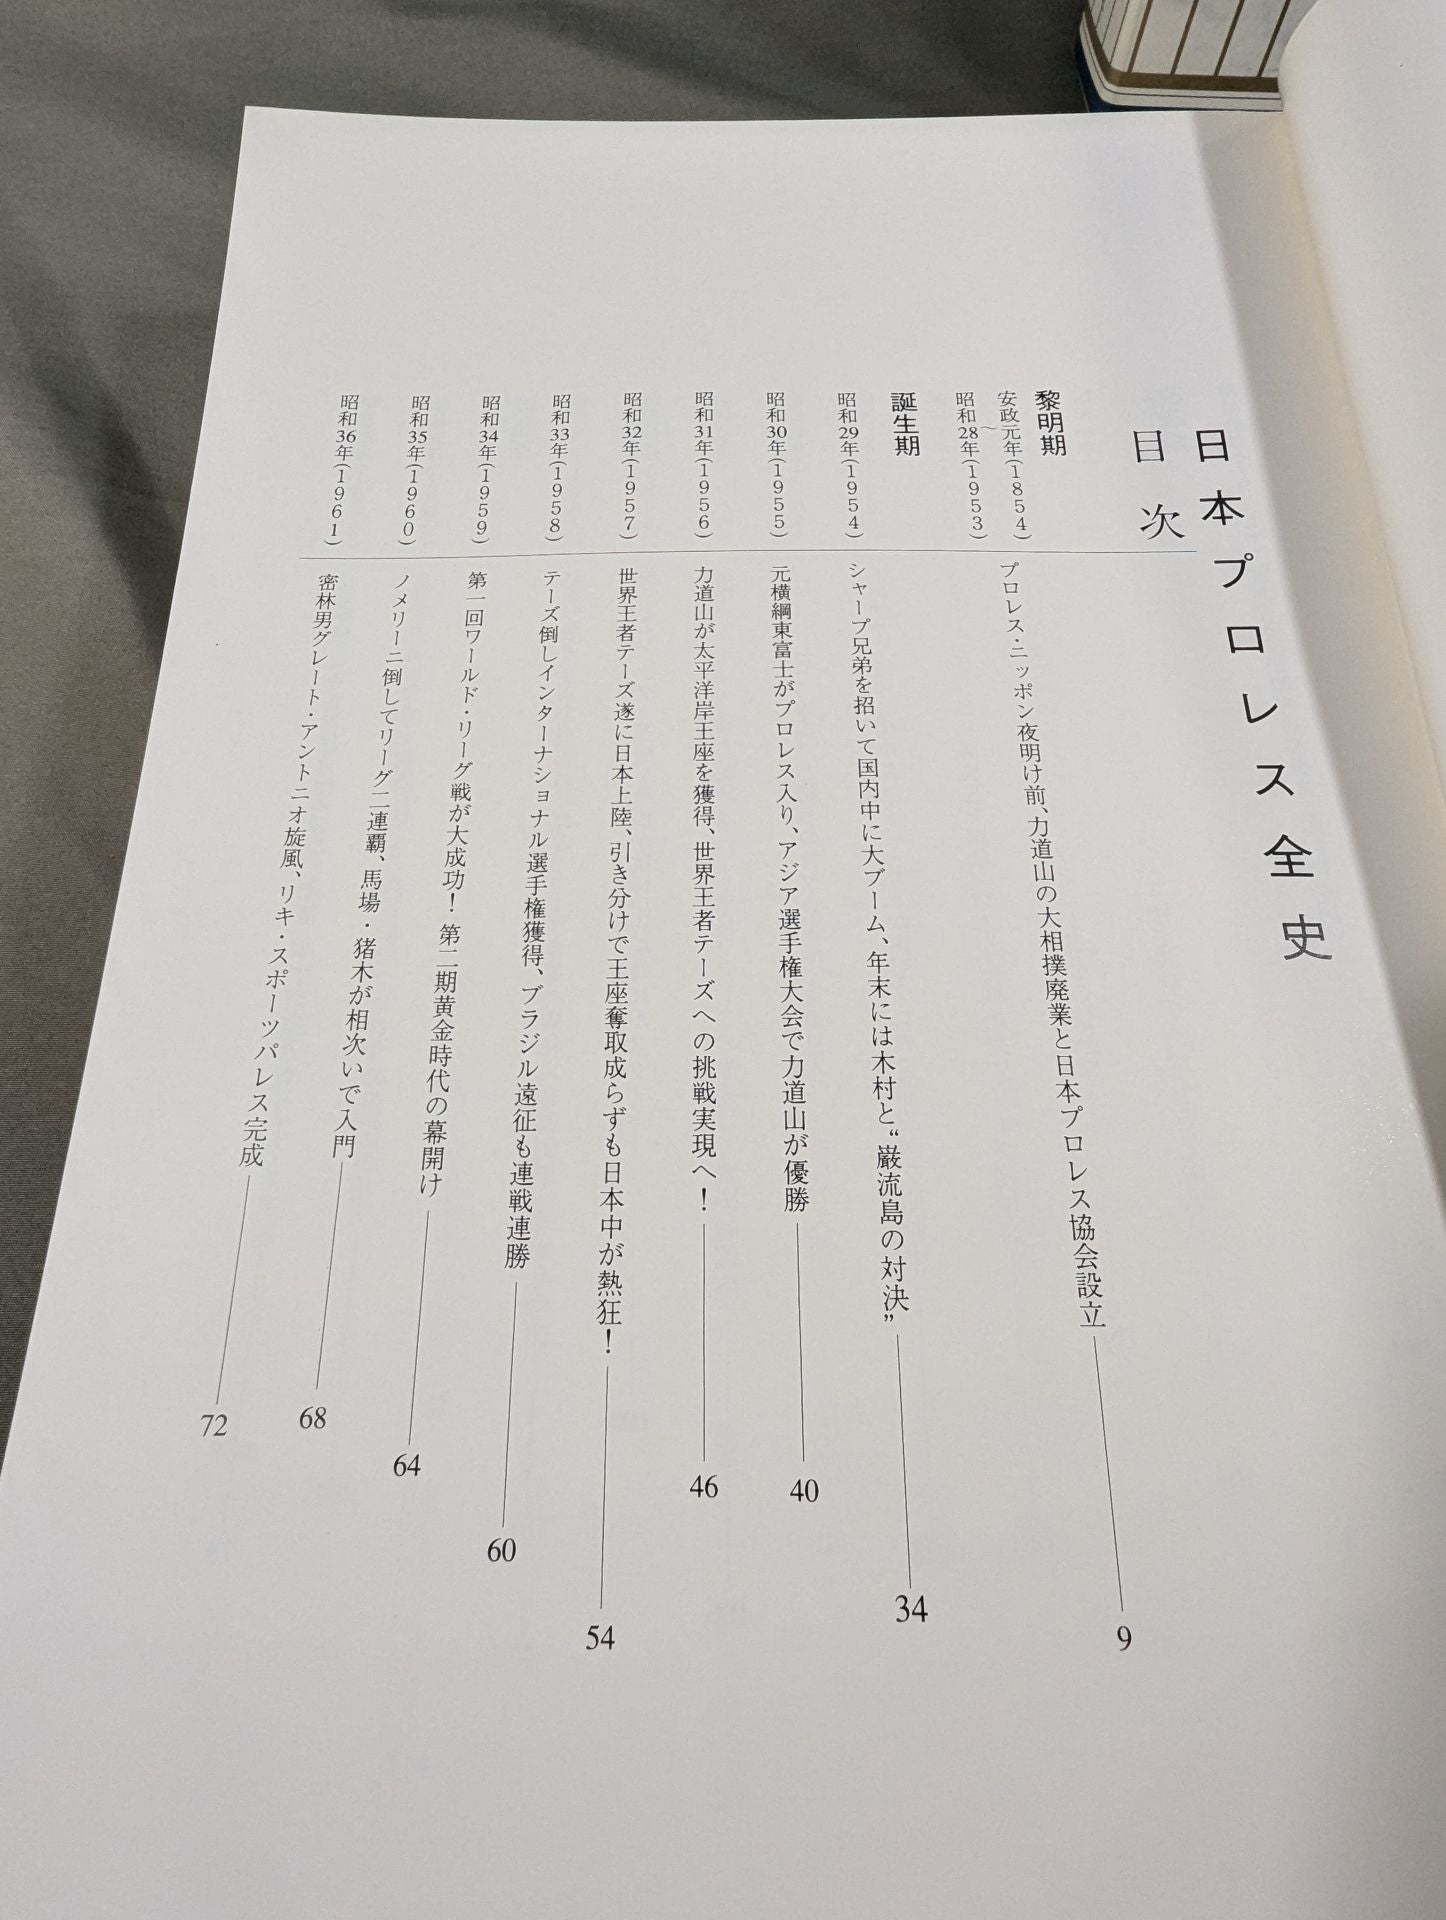 日本プロレス全史
目次
黎明期
安政元年(1854)
〜
昭和28年(1953)
プロレス・ニッポン夜明け前、力道山の大相撲廃業と日本プロレス協会設立 9
誕生期
昭和29年(1954)
シャープ兄弟を招いて国内中に大ブーム、年末には木村と“巌流島の対決” 34
昭和30年(1955)
元横綱東富士がプロレス入り、アジア選手権大会で力道山が優勝 40
昭和31年(1956)
力道山が太平洋岸王座を獲得、世界王者テーズへの挑戦実現へ! 46
昭和32年(1957)
世界王者テーズ遂に日本上陸、引き分けで王座奪取成らずも日本中が熱狂! 54
昭和33年(1958)
テーズ倒しインターナショナル選手権獲得、ブラジル遠征も連戦連勝 60
昭和34年(1959)
第一回ワールド・リーグ戦が大成功! 第二期黄金時代の幕開け 64
昭和35年(1960)
ノメリーニ倒してリーグ二連覇、馬場・猪木が相次いで入門 68
昭和36年(1961)
密林男グレート・アントニオ旋風、リキ・スポーツパレス完成 72